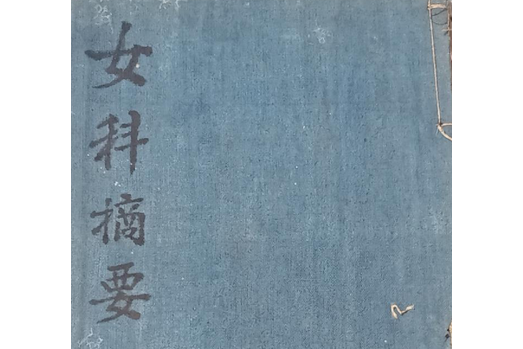 女科摘要